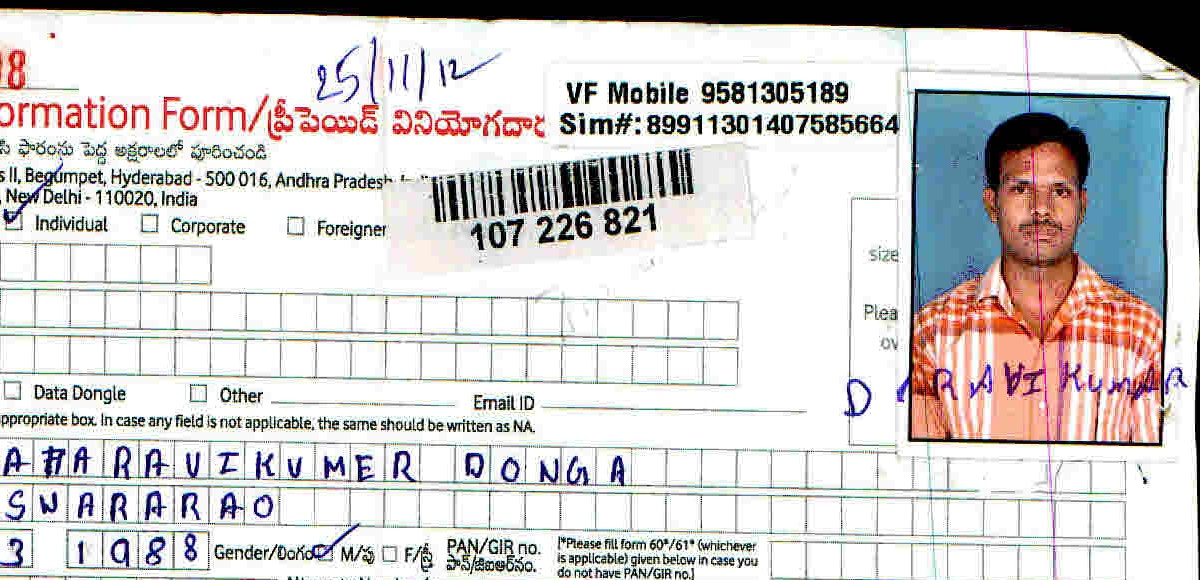 98
25/11/12
VF Mobile 9581305189
ormation Form/ప్రీపెయిడ్ వినియోగదార
Sim#: 89911301407585664
సి ఫారంను పెద్ద అక్షరాలలో పూరించండి
s II, Begumpet, Hyderabad - 500 016, Andhra Pradesh
, New Delhi - 110020, India
107 226 821
Individual Corporate Foreigner
size
Plea
ov
Data Dongle Other Email ID
D RAVI KUMAR
appropriate box. In case any field is not applicable, the same should be written as NA.
RAVIKUMER DONGA
SWARARAO
3 1988 Gender/లింగం M/పు F/స్త్రీ PAN/GIR no. [*Please fill form 60*/61* (whichever
పాన్/జిఐఆర్‌నం. is applicable) given below in case you
do not have PAN/GIR no.]